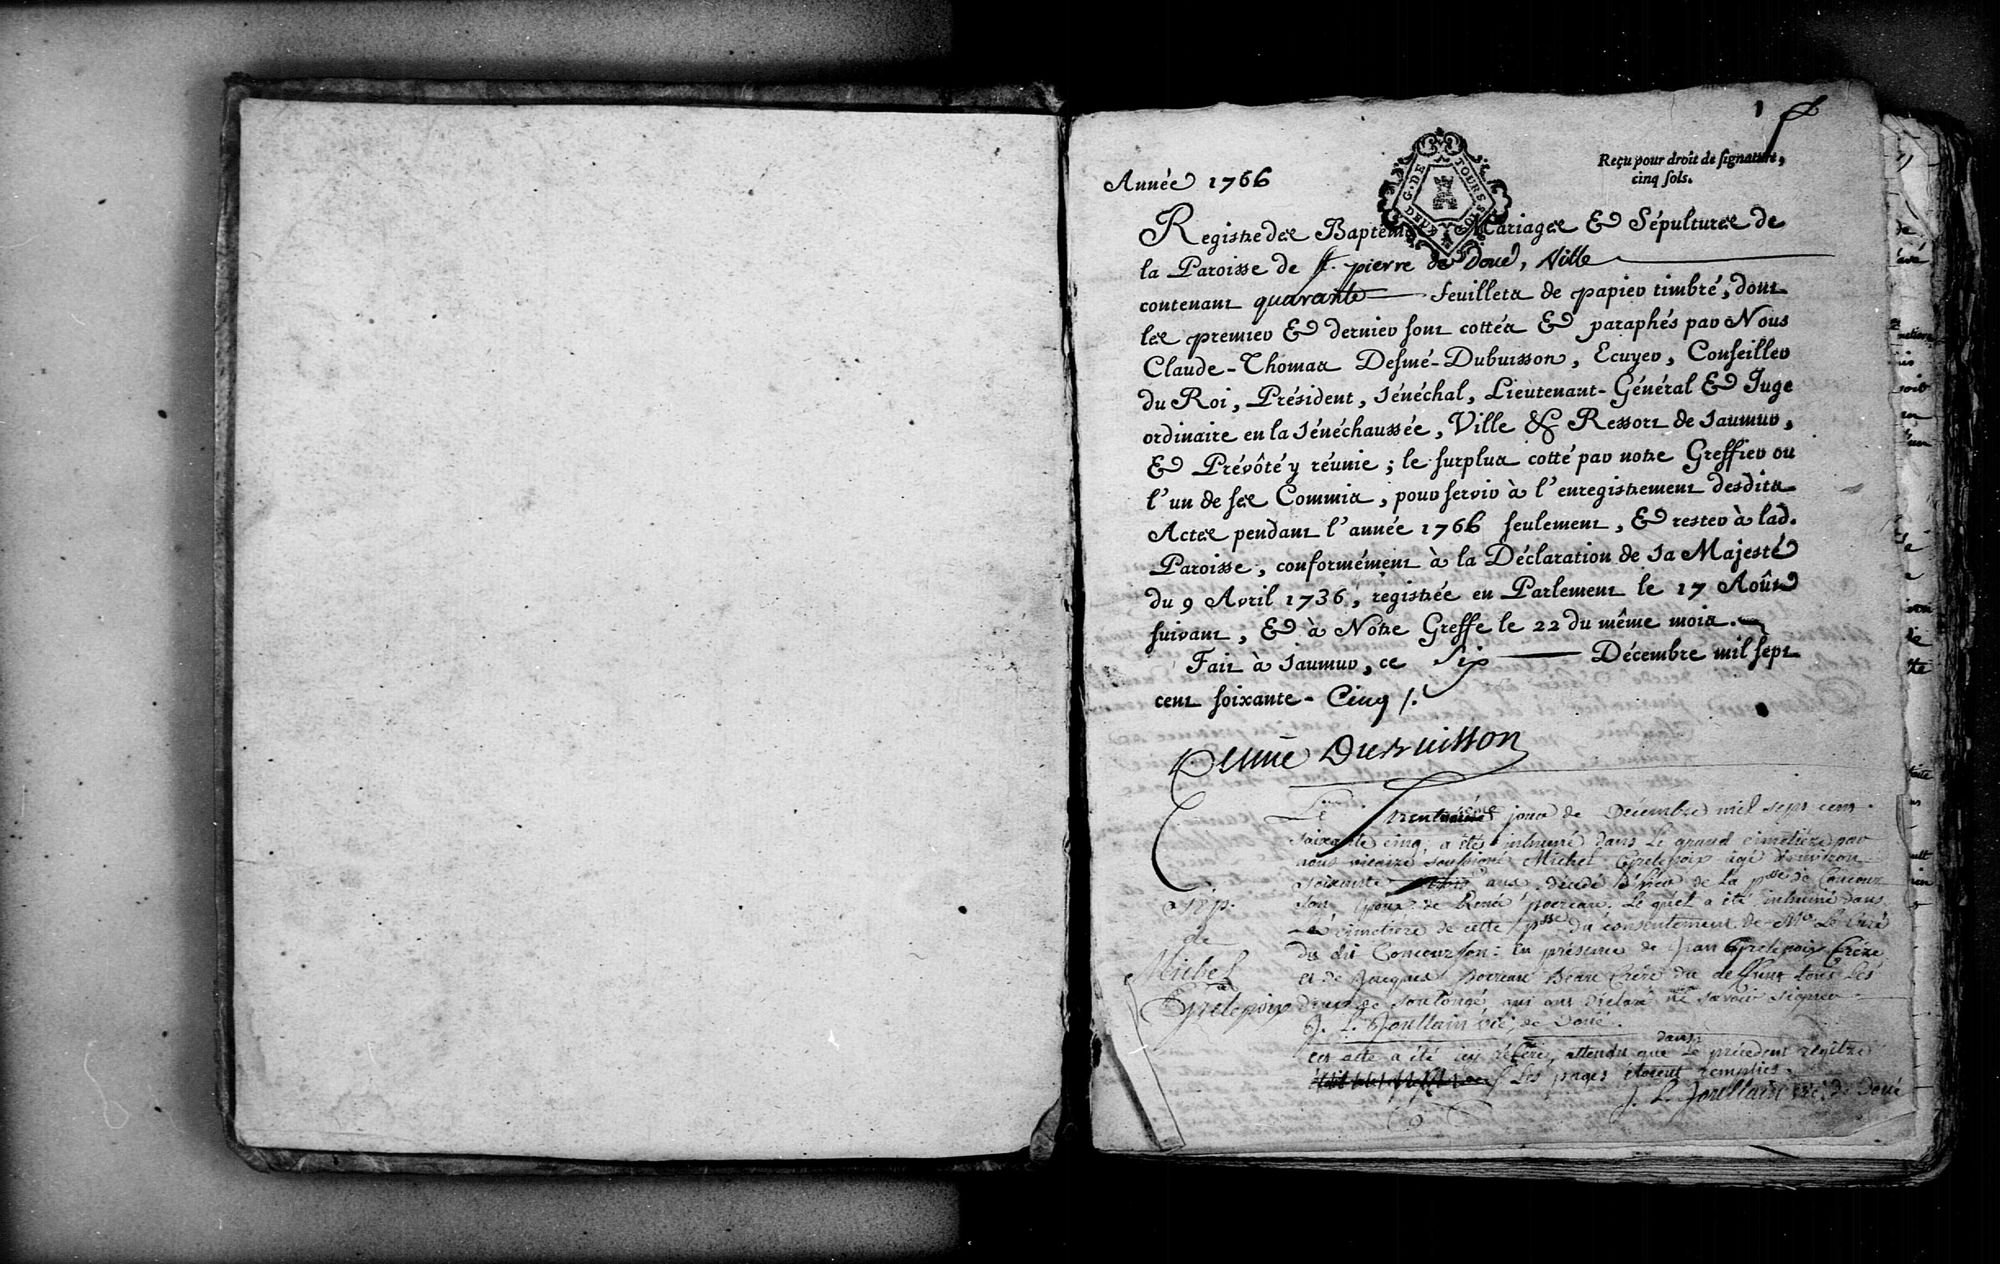 1
Reçu pour droit de signature,
cinq sols.
G. DE TOURS
DEUX SOLS
Année 1766
Registre des Baptêmes Mariages & Sépultures de
la Paroisse de St. pierre de Doué, Ville
contenant quarante feuillets de papier timbré, dont
les premier & dernier sont cottés & paraphés par Nous
Claude-Thomas Desmé-Dubuisson, Ecuyer, Conseiller
du Roi, Président, Sénéchal, Lieutenant-Général & Juge
ordinaire en la Sénéchaussée, Ville & Ressort de Saumur,
& Prévôté y réunie ; le surplus cotté par notre Greffier ou
l'un de ses Commis, pour servir à l'enregistrement desdits
Actes pendant l'année 1766 seulement, & rester à lad.
Paroisse, conformément à la Déclaration de Sa Majesté
du 9 Avril 1736, registrée en Parlement le 17 Août
suivant, & à Notre Greffe le 22 du même mois.
Fait à Saumur, ce Six Décembre mil sept
cent soixante-Cinq /.
Desmé Dubuisson
Sép.
de
Michel
Grelepoix
Le trentième jour de Décembre mil sept cens
soixante cinq, a été inhumé dans le grand cimetière par
nous vicaire soussigné Michel Grelepoix agé d'environ
soixante ans, décédé de la psse de Concour
son Epoux de Renée poireau. Le quel a été inhumé dans
Le cimetière de cette psse du consentement de Mr Le Curé
du dit Concourson : En présence de Jean Grelepoix frère
et de Jacques Beau frère du deffunt tous les
deux de Soulongé, qui ont déclaré ne savoir signer
J. L. Joullain vic. de Doué.
cet acte a été icy référé, attendu que dans Le précédent registre
Les pages étoient remplies.
J. L. Joullain vic. de Doué